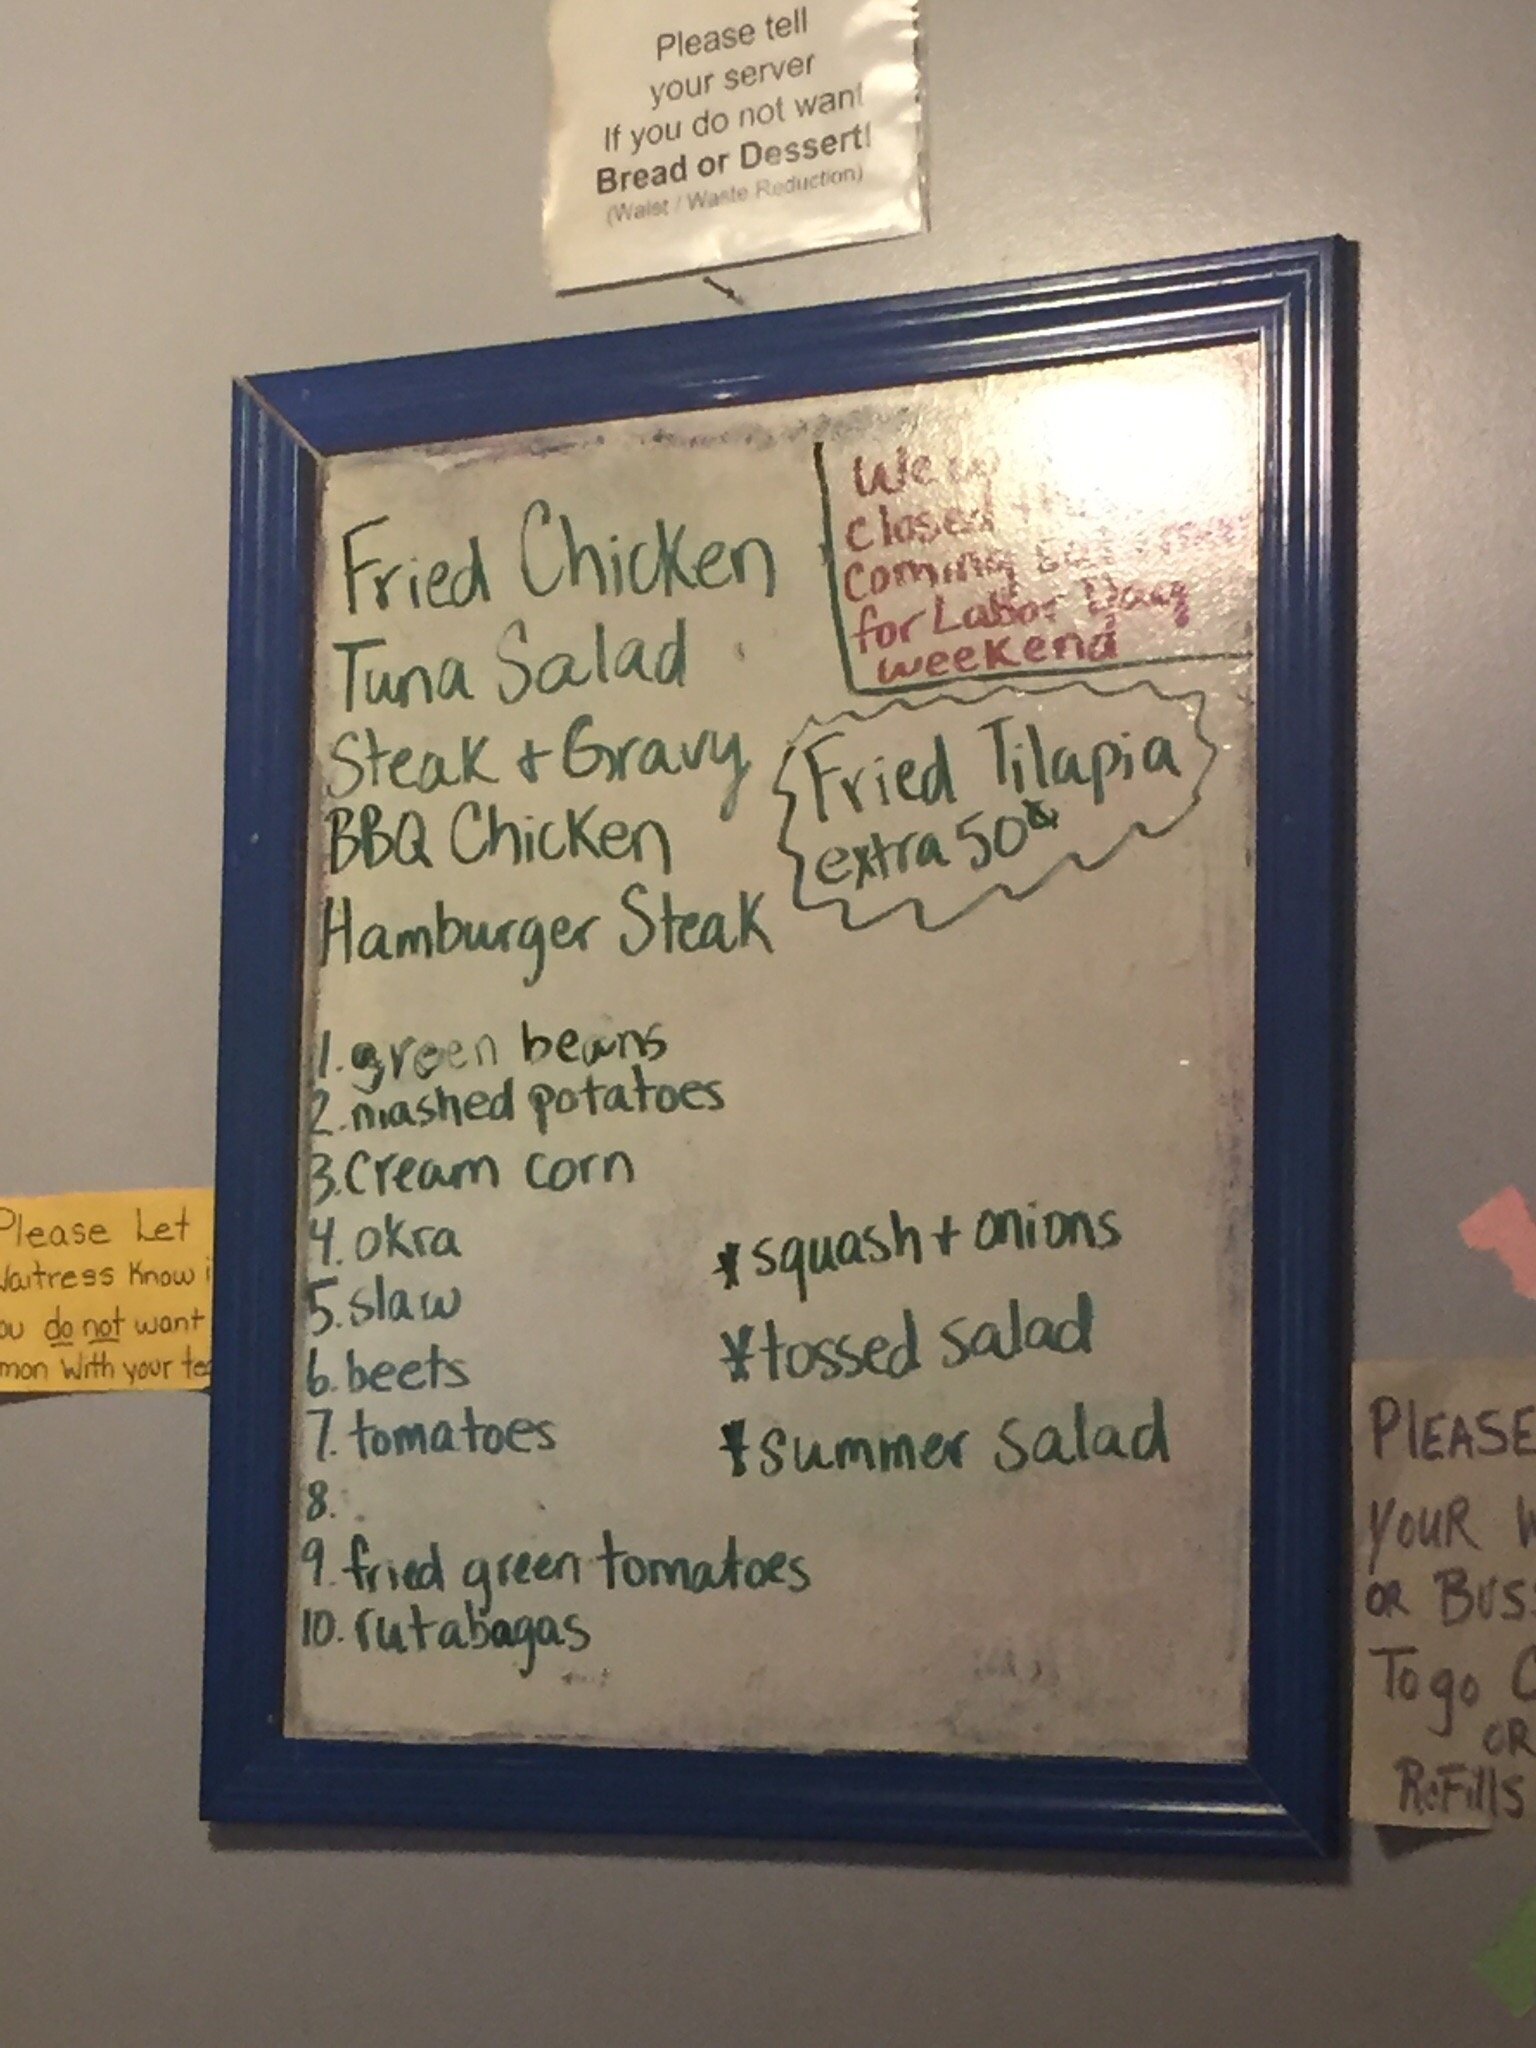 Please tell
your server
If you do not want
Bread or Dessert!
(Waist / Waste Reduction)
We
closed
coming
for Labor Day
weekend
Fried Chicken
Tuna Salad
Steak + Gravy
BBQ Chicken
Hamburger Steak
Fried Tilapia
extra 50¢
1. green beans
2. mashed potatoes
3. cream corn
4. okra
5. slaw
6. beets
7. tomatoes
8.
9. fried green tomatoes
10. rutabagas
*squash + onions
*tossed salad
*summer salad
Please Let
Waitress Know i
ou do not want
mon with your te
PLEASE
YOUR W
OR BUS
To go C
OR
ReFills